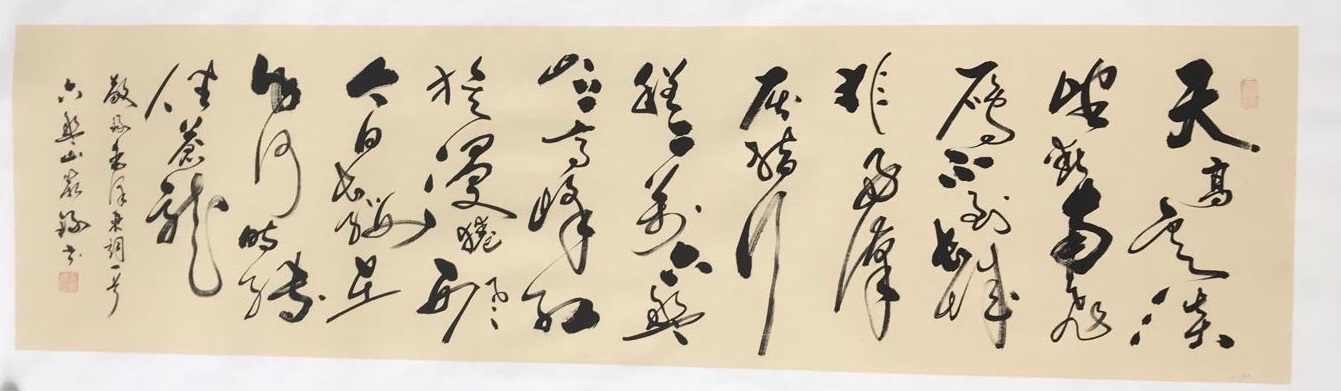 天高雲淡
望斷南飛
雁不到長城
非好漢
屈指行
程二萬六盤
山上高峰紅
旗漫捲西風
今日長纓在
手何時縛
住蒼龍
敬錄毛澤東詞一首
六盤山書